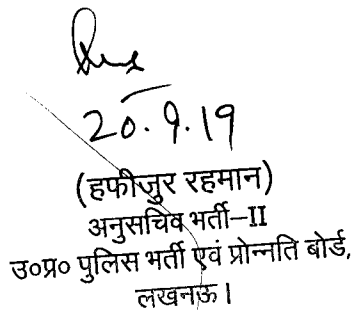 20.9.19
(हफीजुर रहमान)
अनुसचिव भर्ती–II
उ०प्र० पुलिस भर्ती एवं प्रोन्नति बोर्ड,
लखनऊ।